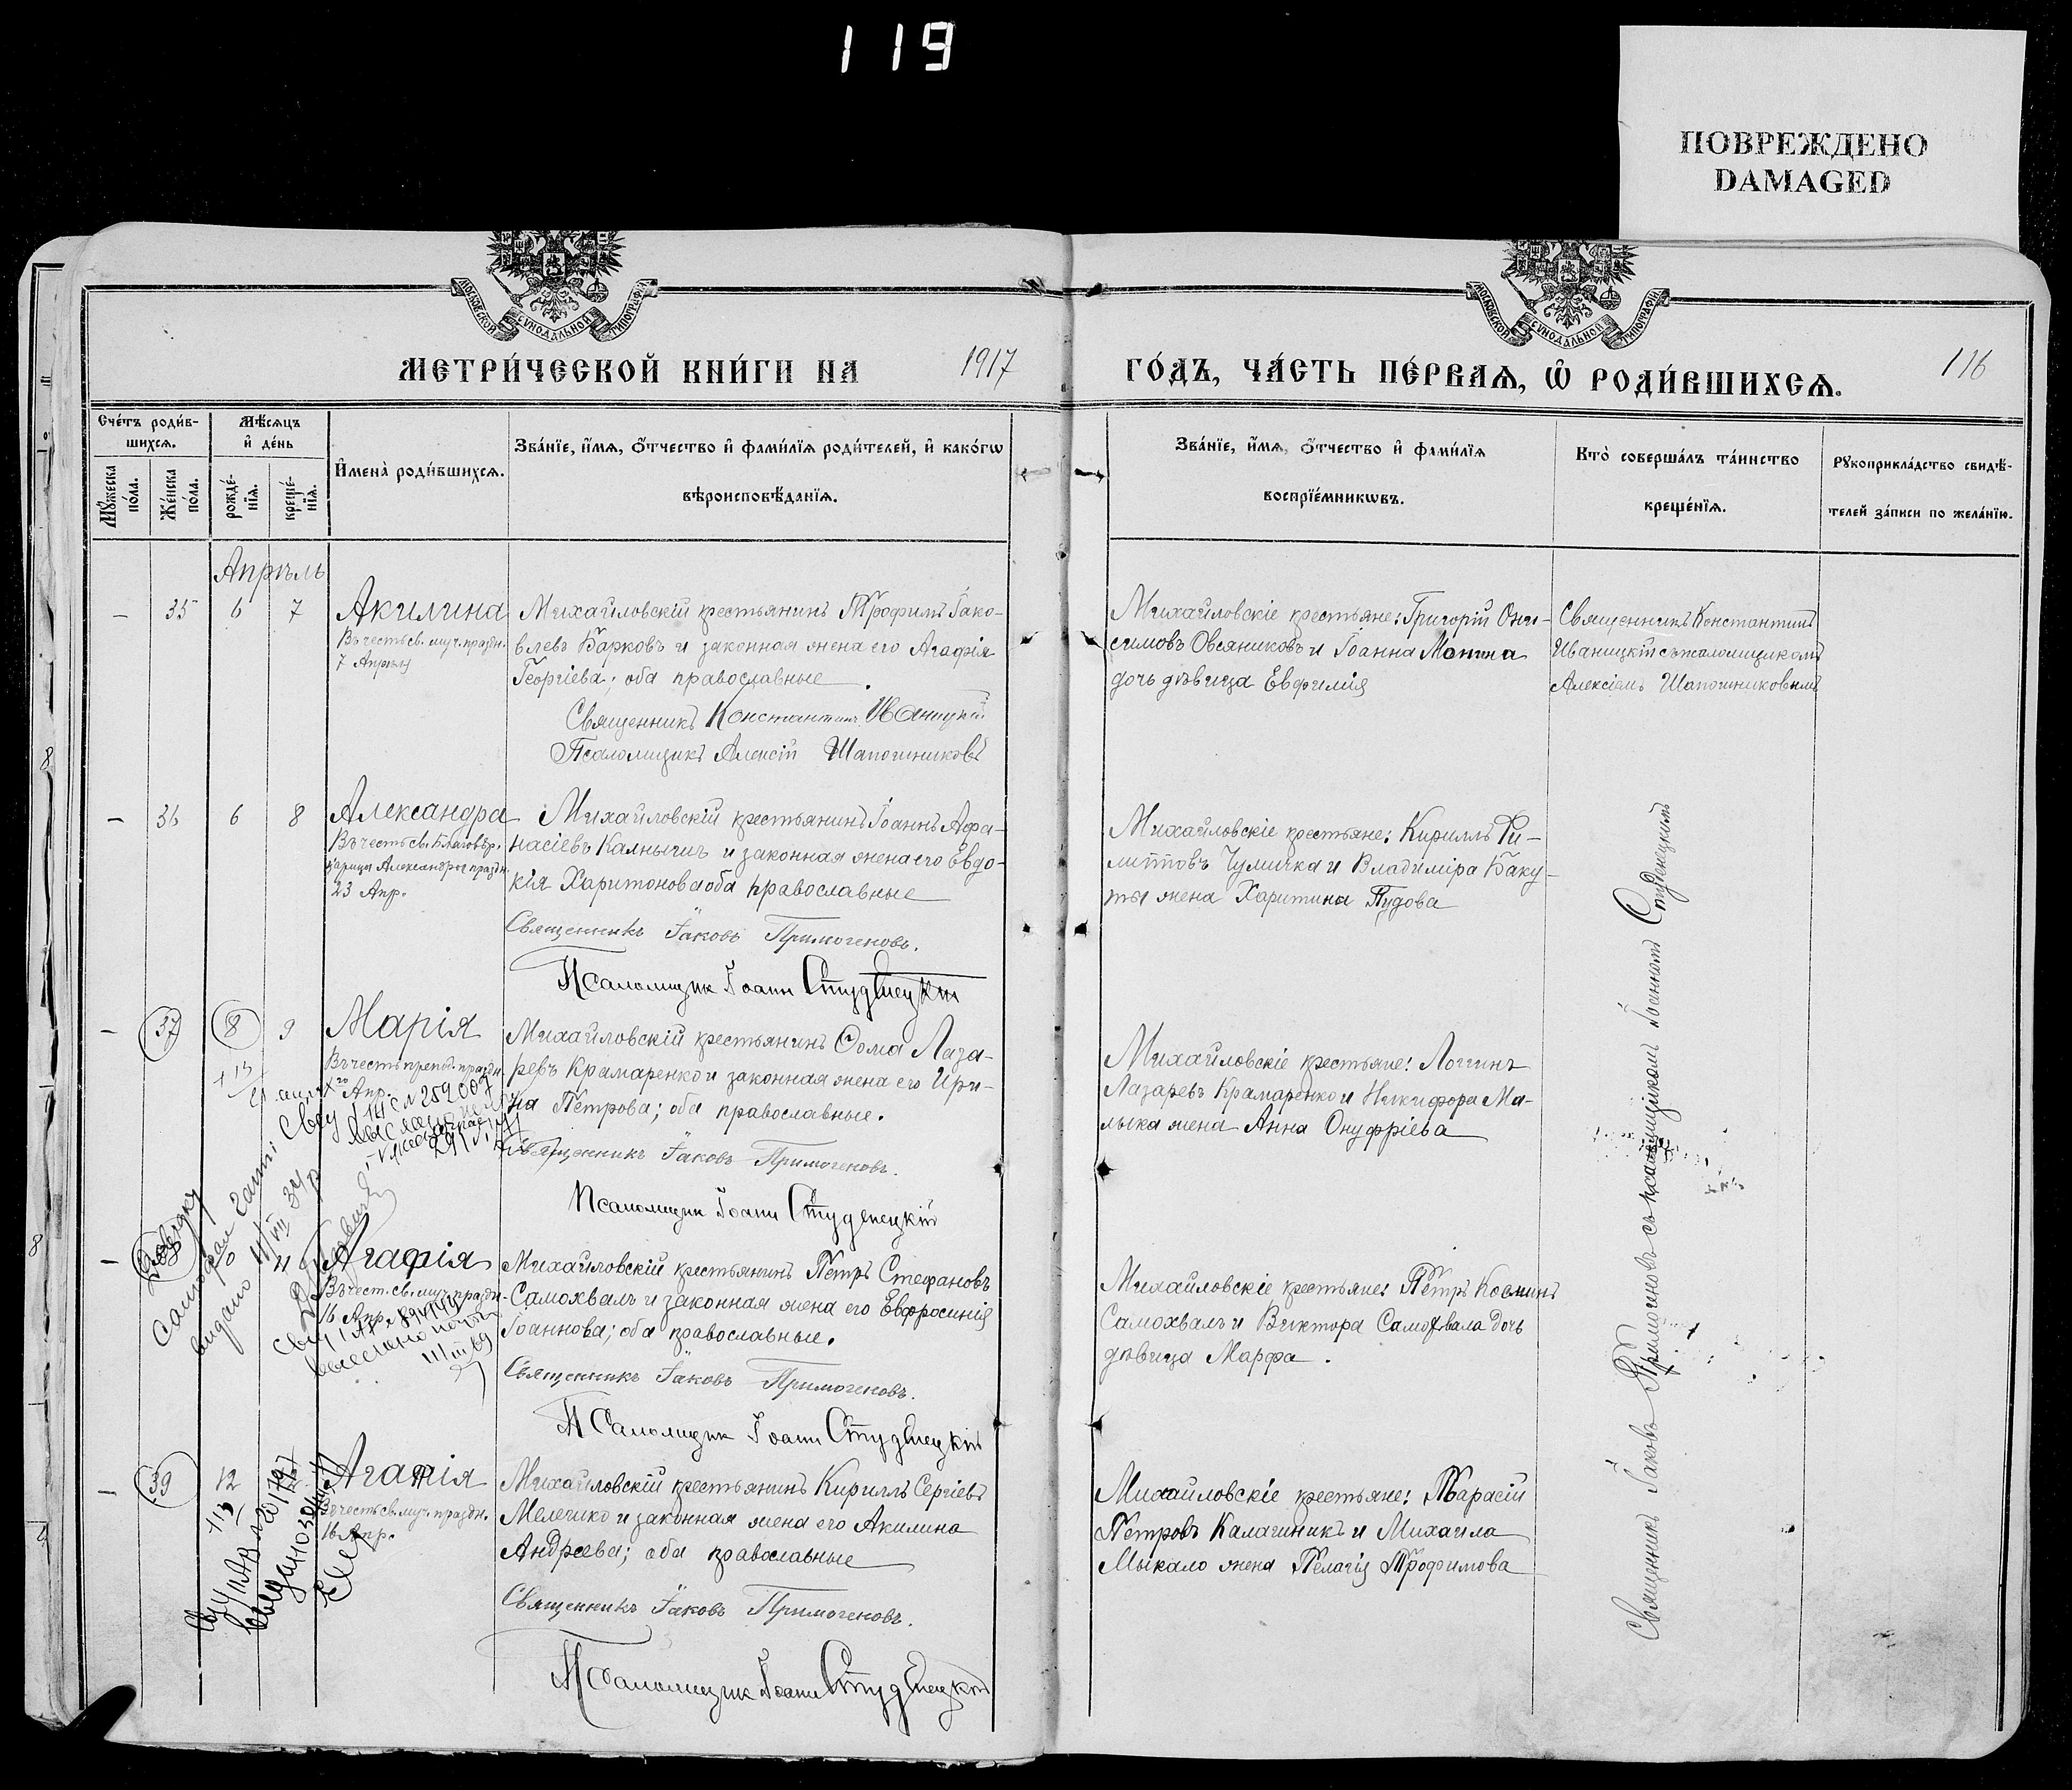 119
ПОВРЕЖДЕНО
DAMAGED
МОСКОВСКОЙ СѴНОДАЛЬНОЙ ТИПОГРАФІИ
МОСКОВСКОЙ СѴНОДАЛЬНОЙ ТИПОГРАФІИ
МЕТРИ́ЧЕСКОЙ КНИ́ГИ НА 1917 ГО́ДЪ, ЧА́СТЬ ПЕ́РВАѦ, Ѡ҆ РОДИ́ВШИХСѦ.
116
Сче́тъ роди́в-
шихсѧ.
Мꙋ́жеска
по́ла.
Же́нска
по́ла.
Мѣ́сѧцъ
и҆ де́нь
рожде́-
нїѧ.
креще́-
нїѧ.
И҆мена̀ роди́вшихсѧ.
Зва́нїе, и҆́мѧ, ѻ҆́тчество и҆ фами́лїѧ роди́телей, и҆ како́гѡ
вѣроисповѣ́данїѧ.
Зва́нїе, и҆́мѧ, ѻ҆́тчество и҆ фами́лїѧ
воспрїе́мникѡвъ.
Кто̀ соверша́лъ та́инство
креще́нїѧ.
Рꙋкоприкла́дство свидѣ́-
телей за́писи по жела́нїю.
Апрѣль
– 35 6 7 Акилина
Въ честь св. муч. праздн.
7 Апрѣля
Михайловскій крестьянинъ Трофимъ Іако-
влевъ Барковъ и законная жена его Агафія
Георгіева; оба православные
Священникъ Константинъ Иваницкій
Псаломщикъ Алексій Шапошниковъ
Михайловскіе крестьяне: Григорій Они-
симовъ Овсяниковъ и Іоанна Монина
дочь дѣвица Евфимія
Священникъ Константинъ
Иваницкій съ псаломщикомъ
Алексіемъ Шапошниковымъ
– 36 6 8 Александра
Въ честь св. Благовѣр.
царицы Александры праздн.
23 Апр.
Михайловскій крестьянинъ Іоаннъ Афа-
насіевъ Калнышъ и законная жена его Евдо-
кія Харитонова оба православные
Священникъ Іаковъ Примогеновъ.
Псаломщик Іоанн Студенецкій
Михайловскіе крестьяне: Кириллъ Фи-
липповъ Чумичка и Владиміра Баку-
ты жена Харитина Пудова
– 37 8 9 Марія
Въ честь препод. праздн.
Апр.
№ 259007
Михайловскій крестьянинъ Ѳома Лаза-
ревъ Крамаренко и законная жена его Ири-
на Петрова; оба православные.
Священникъ Іаковъ Примогеновъ.
Псаломщик Іоанн Студенецкій
Михайловскіе крестьяне: Логгинъ
Лазаревъ Крамаренко и Никифора Ма-
лыка жена Анна Онуфріева
– 10 11 Агафія
Въ чест. св. муч. праздн.
16 Апр.
Михайловскій крестьянинъ Петръ Стефановъ
Самохвалъ и законная жена его Евфросинія
Іоаннова; оба православные.
Священникъ Іаковъ Примогеновъ.
Псаломщик Іоанн Студенецкій
Михайловскіе крестьяне: Петръ Косминъ
Самохвалъ и Виктора Самохвала дочь
дѣвица Марфа.
– 39 12 Агафія
Въ честь св. муч. праздн.
16 Апр.
Михайловскій крестьянинъ Кириллъ Сергіевъ
Мелечико и законная жена его Акилина
Андреева; оба православные
Священникъ Іаковъ Примогеновъ.
Псаломщик Іоанн Студенецкій
Михайловскіе крестьяне: Тарасій
Петровъ Калашникъ и Михаила
Мыкало жена Пелагія Трофимова
Священникъ Іаковъ Примогеновъ съ псаломщикомъ Іоанномъ Студенецкимъ